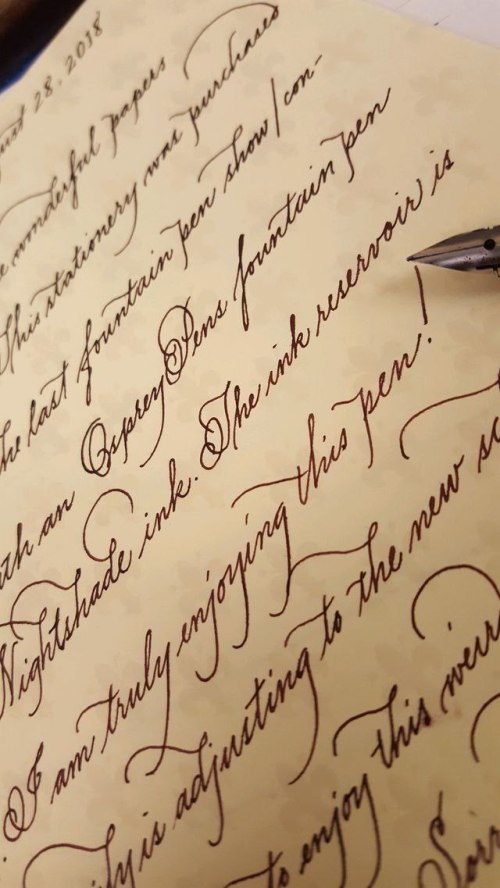 28, 2018
wonderful papers
This stationery was purchased
the last fountain pen show/con-
with an Osprey Pens fountain pen
Nightshade ink. The ink reservoir is
I am truly enjoying this pen!
is adjusting to the new
to enjoy this weir